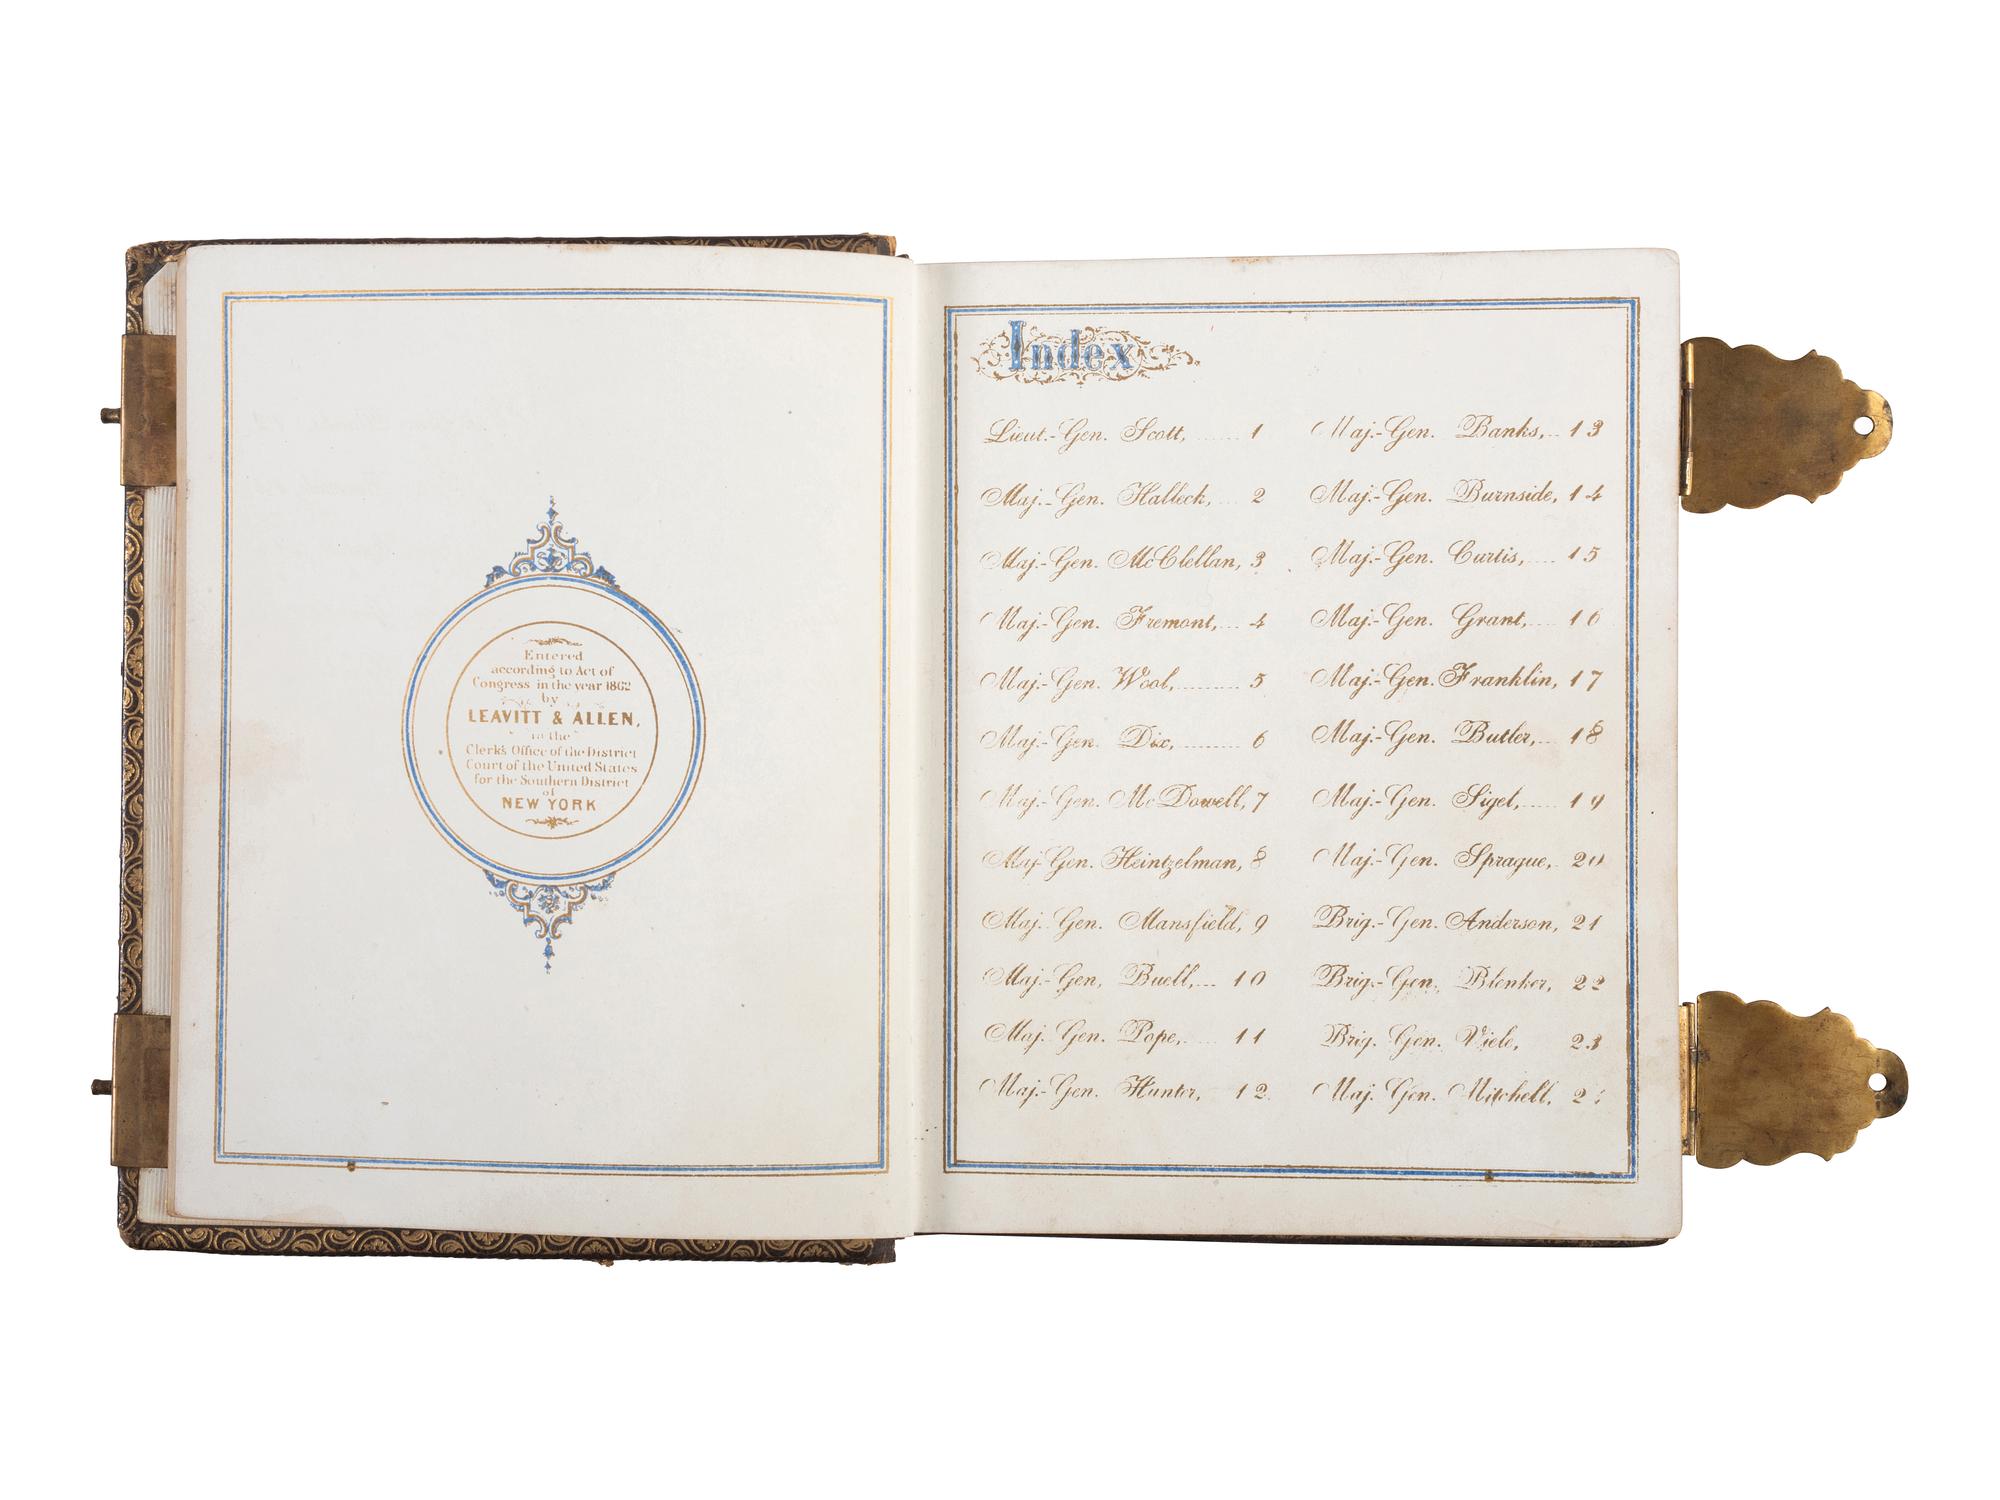 Entered
according to Act of
Congress in the year 1862
by
LEAVITT & ALLEN,
in the
Clerk's Office of the District
Court of the United States
for the Southern District
of
NEW YORK
Index
Lieut.-Gen. Scott, ...... 1
Maj.-Gen. Halleck, .... 2
Maj.-Gen. McClellan, 3
Maj.-Gen. Fremont, ... 4
Maj.-Gen. Wool, .......... 5
Maj.-Gen. Dix, .......... 6
Maj.-Gen. McDowell, 7
Maj-Gen. Heintzelman, 8
Maj. Gen. Mansfield, 9
Maj.-Gen, Buell, ... 10
Maj. Gen. Pope, ..... 11
Maj.-Gen. Hunter, 12
Maj.-Gen. Banks, .. 13
Maj.-Gen. Burnside, 14
Maj.-Gen. Curtis, .... 15
Maj.-Gen. Grant, .... 16
Maj.-Gen. Franklin, 17
Maj.-Gen. Butler, ... 18
Maj.-Gen. Sigel, ..... 19
Maj.-Gen. Sprague, 20
Brig.-Gen. Anderson, 21
Brig.-Gen. Blenker, 22
Brig. Gen. Viele, 23
Maj. Gen. Mitchell,